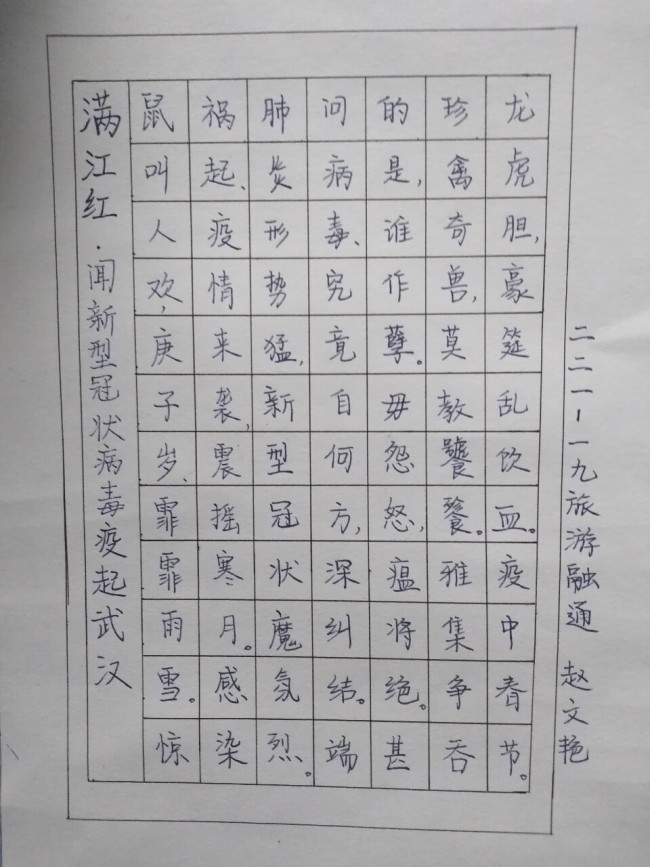 满江红·闻新型冠状病毒疫起武汉
鼠叫人欢，庚子岁、霏霏雨雪。惊
祸起、疫情来袭，震摇寒月。感染
肺炎形势猛，新型冠状魔氛烈。
问病毒、究竟自何方，深纠结。端
的是，谁作孽。毋怨怒，瘟将绝。甚
珍禽奇兽，莫教饕餮。雅集争吞
龙虎胆，豪筵乱饮血。疫中春节。
二二一一一九旅游融通 赵文艳